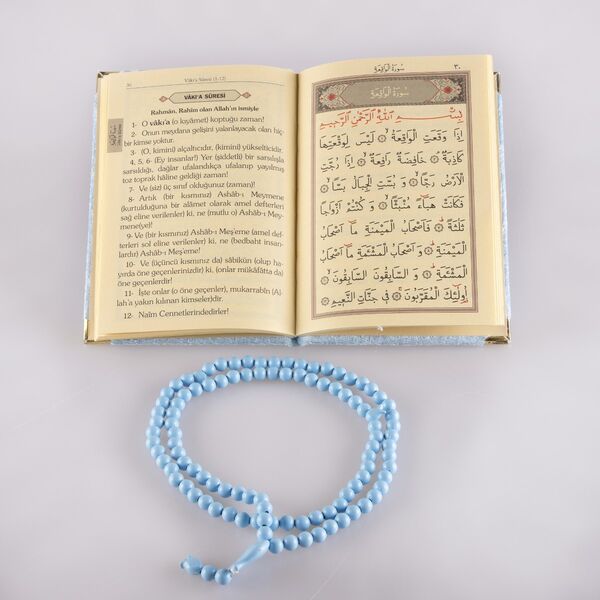 30 Vâkı'a Sûresi (1-12)
VÂKI'A SÛRESİ
Rahmân, Rahîm olan Allah'ın ismiyle
1- O vâkı'a (o kıyâmet) koptuğu zaman!
2- Onun meydana gelişini yalanlayacak olan hiç-
bir kimse yoktur.
3- (O, kimini) alçaltıcıdır, (kimini) yükselticidir.
4, 5, 6- (Ey insanlar!) Yer (şiddetli) bir sarsılışla
sarsıldığı, dağlar ufalandıkça ufalanıp yayılmış
toz toprak hâline geldiği zaman!
7- Ve (siz) üç sınıf olduğunuz (zaman)!
8- Artık (bir kısmınız) Ashâb-ı Meymene
(kurtulduğuna bir alâmet olarak amel defterleri
sağ eline verilenler) ki, ne (mutlu o) Ashâb-ı Mey-
mene(ye)!
9- Ve (bir kısmınız) Ashâb-ı Meş'eme (amel def-
terleri sol eline verilenler) ki, ne (bedbaht insan-
lardır) Ashâb-ı Meş'eme!
10- Ve (üçüncü kısmınız da) sâbikûn (olup ha-
yırda öne geçenlerinizdir) ki, (onlar mükâfâtta da)
öne geçenlerdir!
11- İşte onlar (o öne geçenler), mukarrabîn (Al-
lah'a yakın kılınan kimseler)dir.
12- Naîm Cennetlerindedirler!
سورة الواقعة ٣٠
سورة الواقعة
بِسْمِ اللّٰهِ الرَّحْمٰنِ الرَّحِيمِ
اِذَا وَقَعَتِ الْوَاقِعَةُ ۙ لَيْسَ لِوَقْعَتِهَا
كَاذِبَةٌ ۢ خَافِضَةٌ رَافِعَةٌ ۙ اِذَا رُجَّتِ
الْاَرْضُ رَجًّا ۙ وَ بُسَّتِ الْجِبَالُ بَسًّا ۙ
فَكَانَتْ هَبَاءً مُنْبَثًّا ۙ وَ كُنْتُمْ اَزْوَاجًا
ثَلٰثَةً ۜ فَاَصْحَابُ الْمَيْمَنَةِ مَا اَصْحَابُ
الْمَيْمَنَةِ ۜ وَ اَصْحَابُ الْمَشْئَمَةِ مَا اَصْحَابُ
الْمَشْئَمَةِ ۜ وَ السَّابِقُونَ السَّابِقُونَ ۙ
اُولٰئِكَ الْمُقَرَّبُونَ ۚ فِي جَنَّاتِ النَّعِيمِ